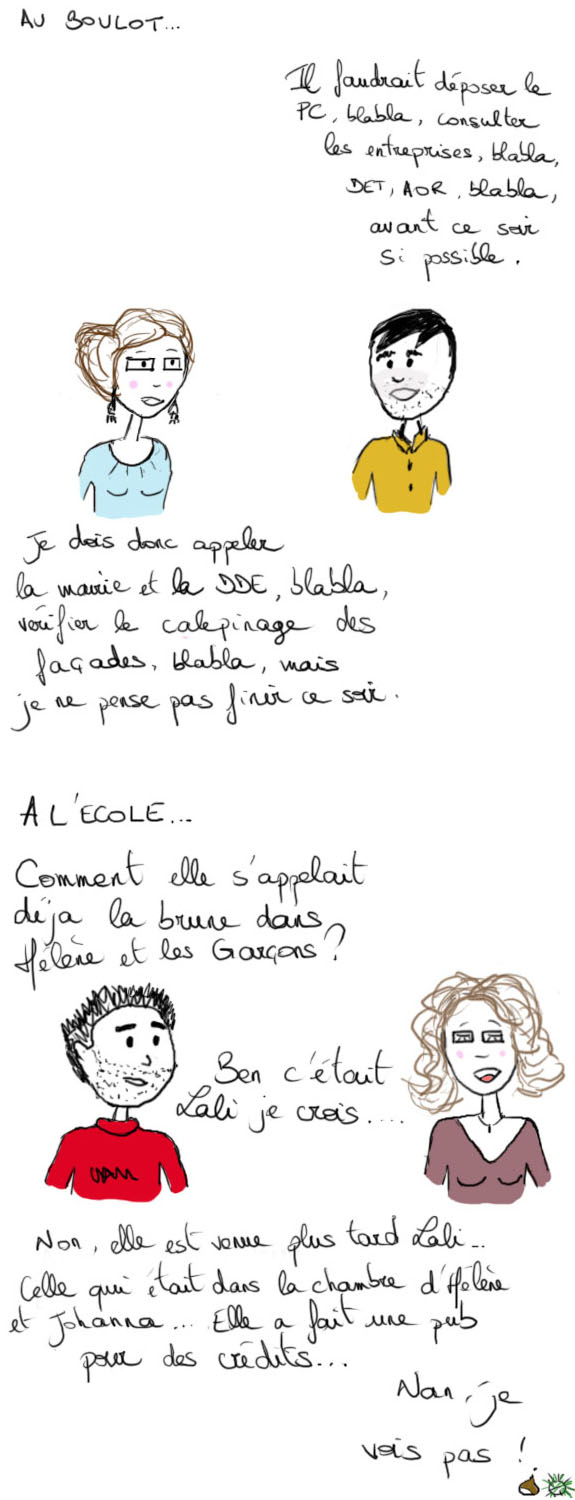 AU BOULOT...
Il faudrait déposer le
PC, blabla, consulter
les entreprises, blabla,
DET, AOR, blabla,
avant ce soir
si possible.
Je dois donc appeler
la mairie et la DDE, blabla,
vérifier le calepinage des
façades, blabla, mais
je ne pense pas finir ce soir.
A L'ECOLE...
Comment elle s'appelait
déja la brune dans
Hélène et les Garçons?
Ben c'était
Lali je crois....
Non, elle est venue plus tard Lali...
Celle qui était dans la chambre d'Hélène
et Johanna... Elle a fait une pub
pour des crédits...
Nan, je
vois pas !